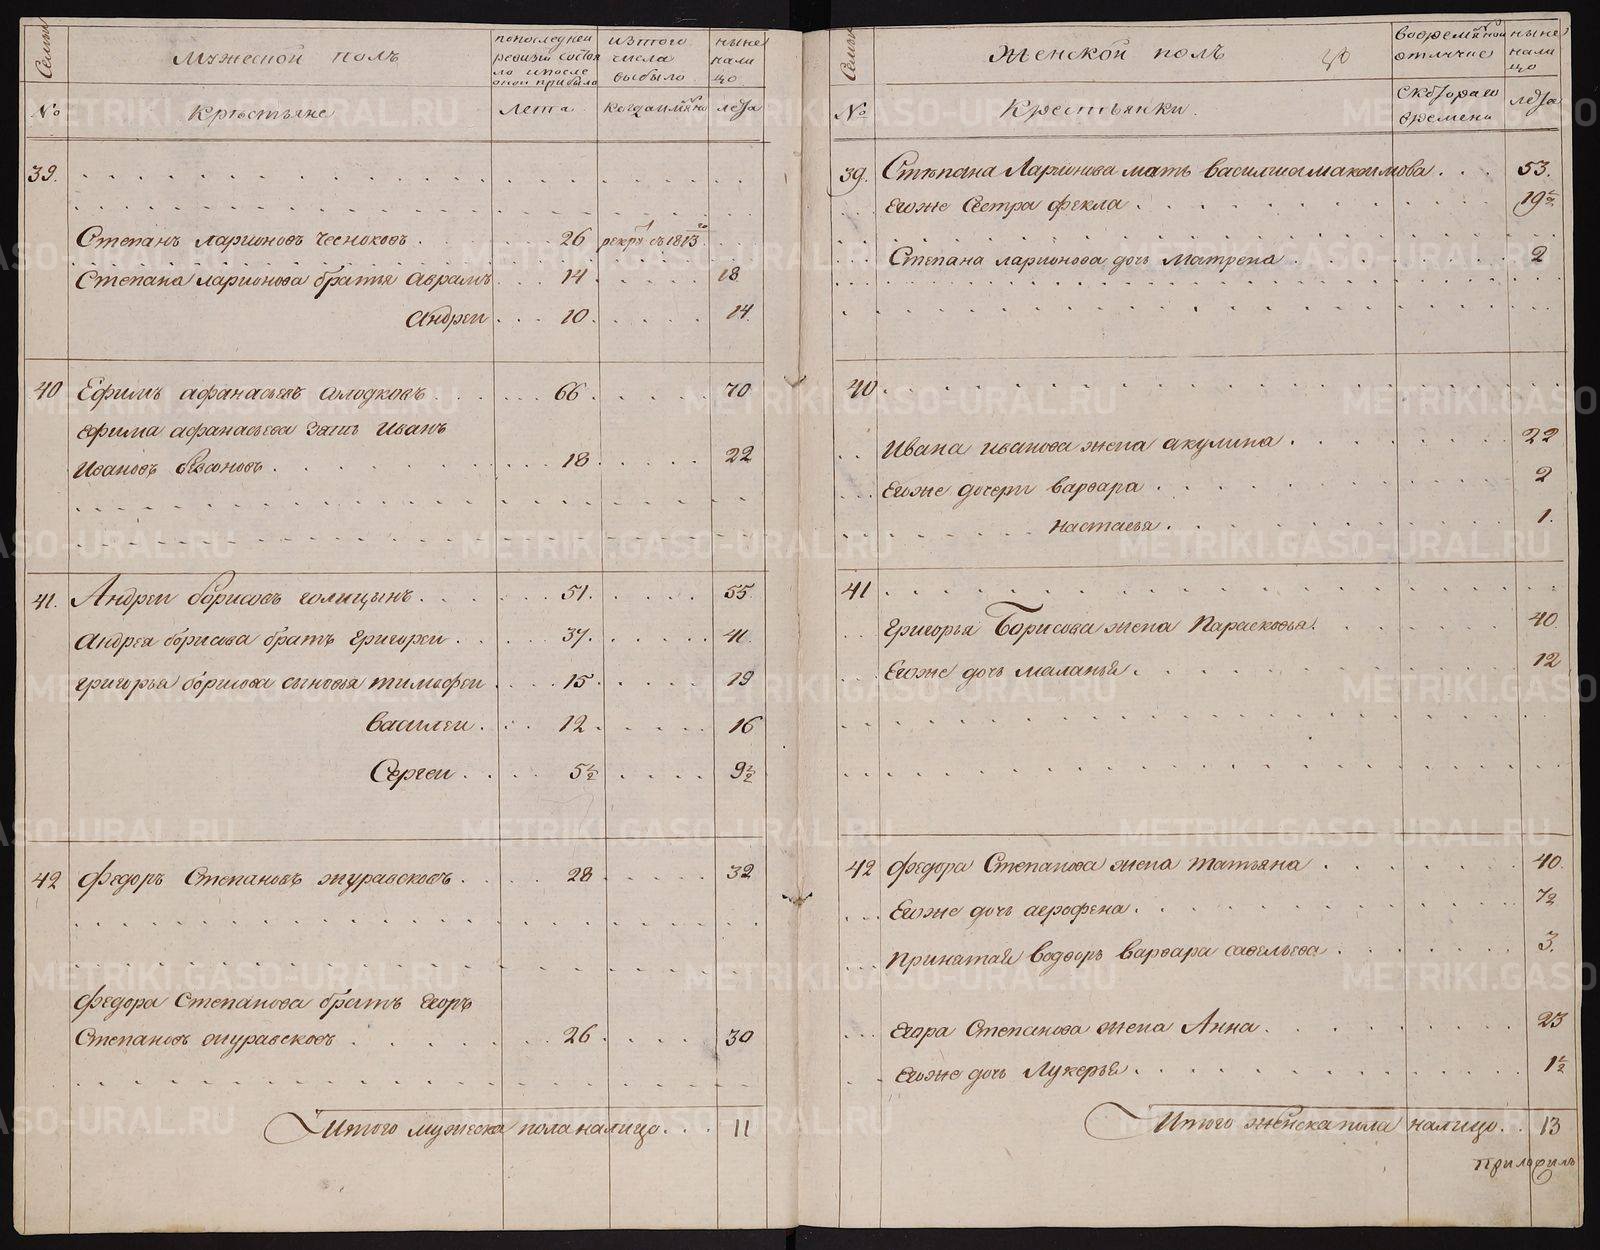 Семьи
Мужескои полъ
попоследнеи ревизіи состояло ипосле оной прибыло
изтого числа выбыло
ныне налицо
№
Крестьяне
Лета
когдаимянно
лета
39.
Степанъ ларионовъ чесноковъ . 26 рекру въ 1813
Степана ларионова братья аврамъ 14 18
андреи 10 14
40 Ефимъ афанасьевъ 66 70
ефима афанасьева зять иванъ
ивановъ 18 22
41. Андреи борисовъ голицынъ 51 55
андрея борисова братъ григореи 37 41
григорья борисова сыновья тимофеи 15 19
василеи 12 16
Сергеи 5½ 9½
42 федоръ Степановъ журавсковъ 28 32
федора Степанова братъ егоръ
Степановъ журавсковъ 26 30
Итого мужеска пола налицо 11
Семьи
Женской полъ
40
вовремянной отлучке
ныне налицо
№
Крестьянки
скотораго времени
лета
39. Степана Ларионова мать василиса максимова 53.
Егоже Сестра фекла 19½
Степана ларионова дочь матрена 2
40
Ивана иванова жена акулина 22
Егоже дочери варвара 2
настасья 1
41
григорья Борисова жена Парасковья 40
Егоже дочь маланья 12
42 федора Степанова жена татьяна 40
Егоже дочь агрофена 7½
принятая водворъ варвара савельева 3
Егора Степанова жена Анна 23
Егоже дочь Лукерья 1½
Итого женска пола налицо 13
METRIKI.GASO-URAL.RU